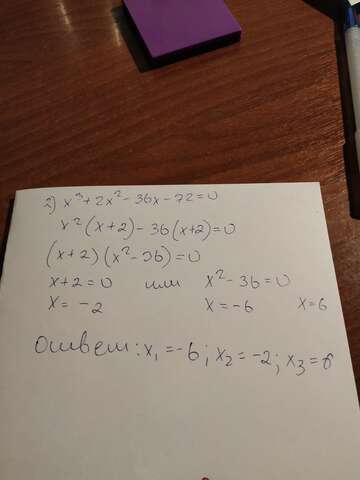 2) x³+2x²-36x-72=0
x²(x+2)-36(x+2)=0
(x+2)(x²-36)=0
x+2=0 или x²-36=0
x=-2 x=-6 x=6
Ответ: x₁=-6; x₂=-2; x₃=6